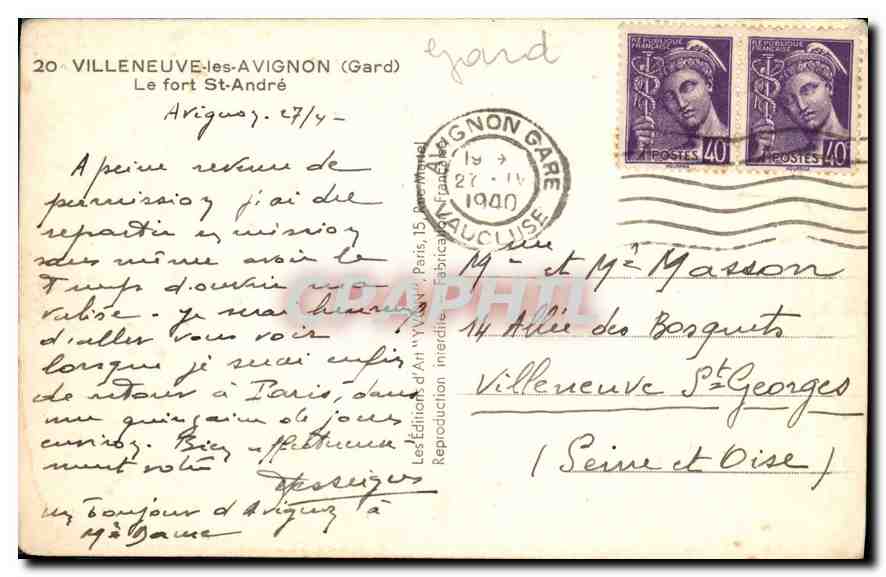 Gard
20 VILLENEUVE-les-AVIGNON (Gard)
Le fort St-André
Avignon, 27/4 -
A peine revenu de
permission j'ai dû
repartir en mission
sans même avoir le
temps d'ouvrir ma
valise. Je serai heureux
d'aller vous voir
lorsque je serai enfin
de retour à Paris, dans
une quinzaine de jours
environ. Bien affectueuse-
ment votre
un bonjour d'Avignon à
Me
Les Éditions d'Art "YVON", Paris, 15, Rue Martel
Reproduction interdite Fabrication Française
AVIGNON GARE
19
27 - IV
1940
VAUCLUSE
RÉPUBLIQUE
FRANÇAISE
POSTES 40
RÉPUBLIQUE
FRANÇAISE
POSTES 40
CPAPHIL
Mr et Me Masson
14 Allée des Bosquets
Villeneuve St-Georges
(Seine et Oise)